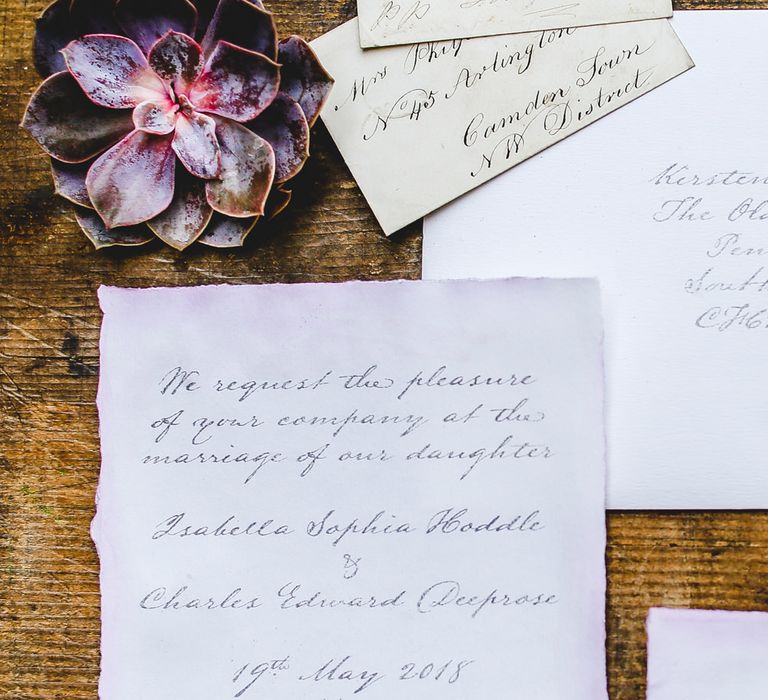 Mrs
No 45 Arlington
Camden Town
NW District
Kersten
The Old
We request the pleasure
of your company at the
marriage of our daughter
Isabella Sophia Hoddle
&
Charles Edward Deeprose
19th May 2018